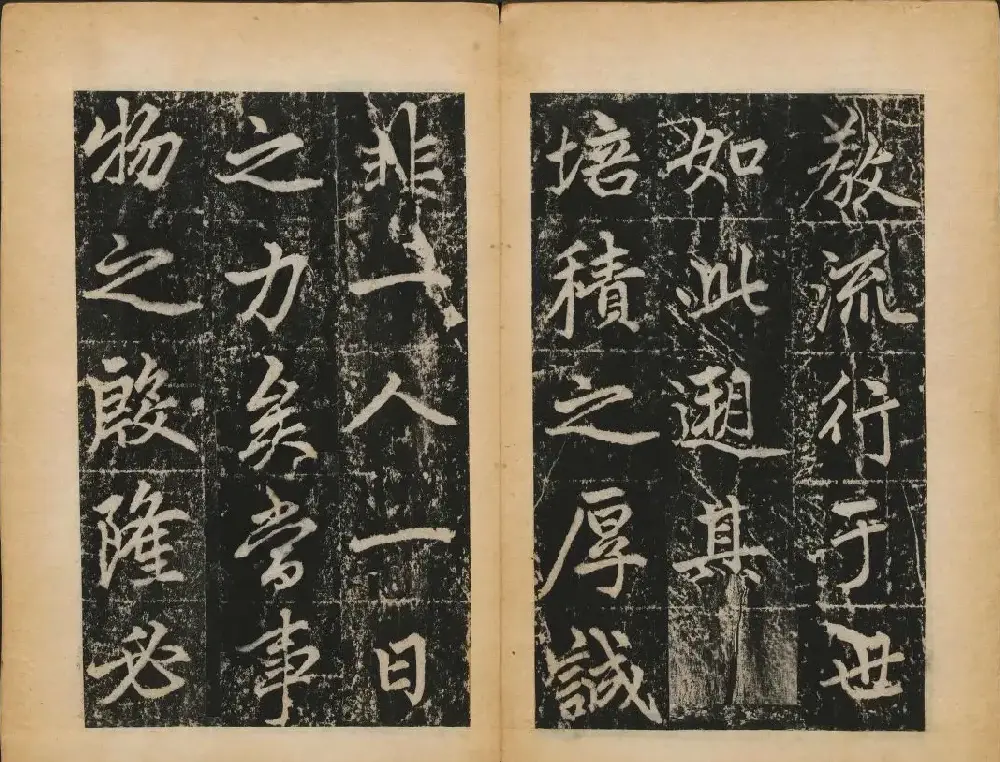 教流行于世
如此遡其
培積之厚誠
非一人一日
之力矣當事
物之殷隆必